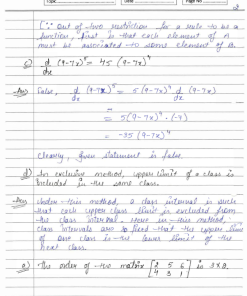 2
(∵ out of two restriction for a rule to be a
function, first is that each element of A
must be associated to some element of B.
c) d/dx (9-7x)⁵ = 45 (9-7x)⁴
Ans False, d/dx (9-7x)⁵ = 5(9-7x)⁴ d/dx (9-7x)
= 5(9-7x)⁴ (-7)
= -35 (9-7x)⁴
Clearly, given statement is false.
d) In exclusive method, upper limit of a class is
included in the same class.
Ans Under this method, a class interval is such
that each upper class limit is excluded from
the class interval. Here in this method,
class intervals are so fixed that the upper limit
of one class is the lower limit of the
next class.
e) The order of two matrix [2 5 6 / 4 3 1] is 3×2.